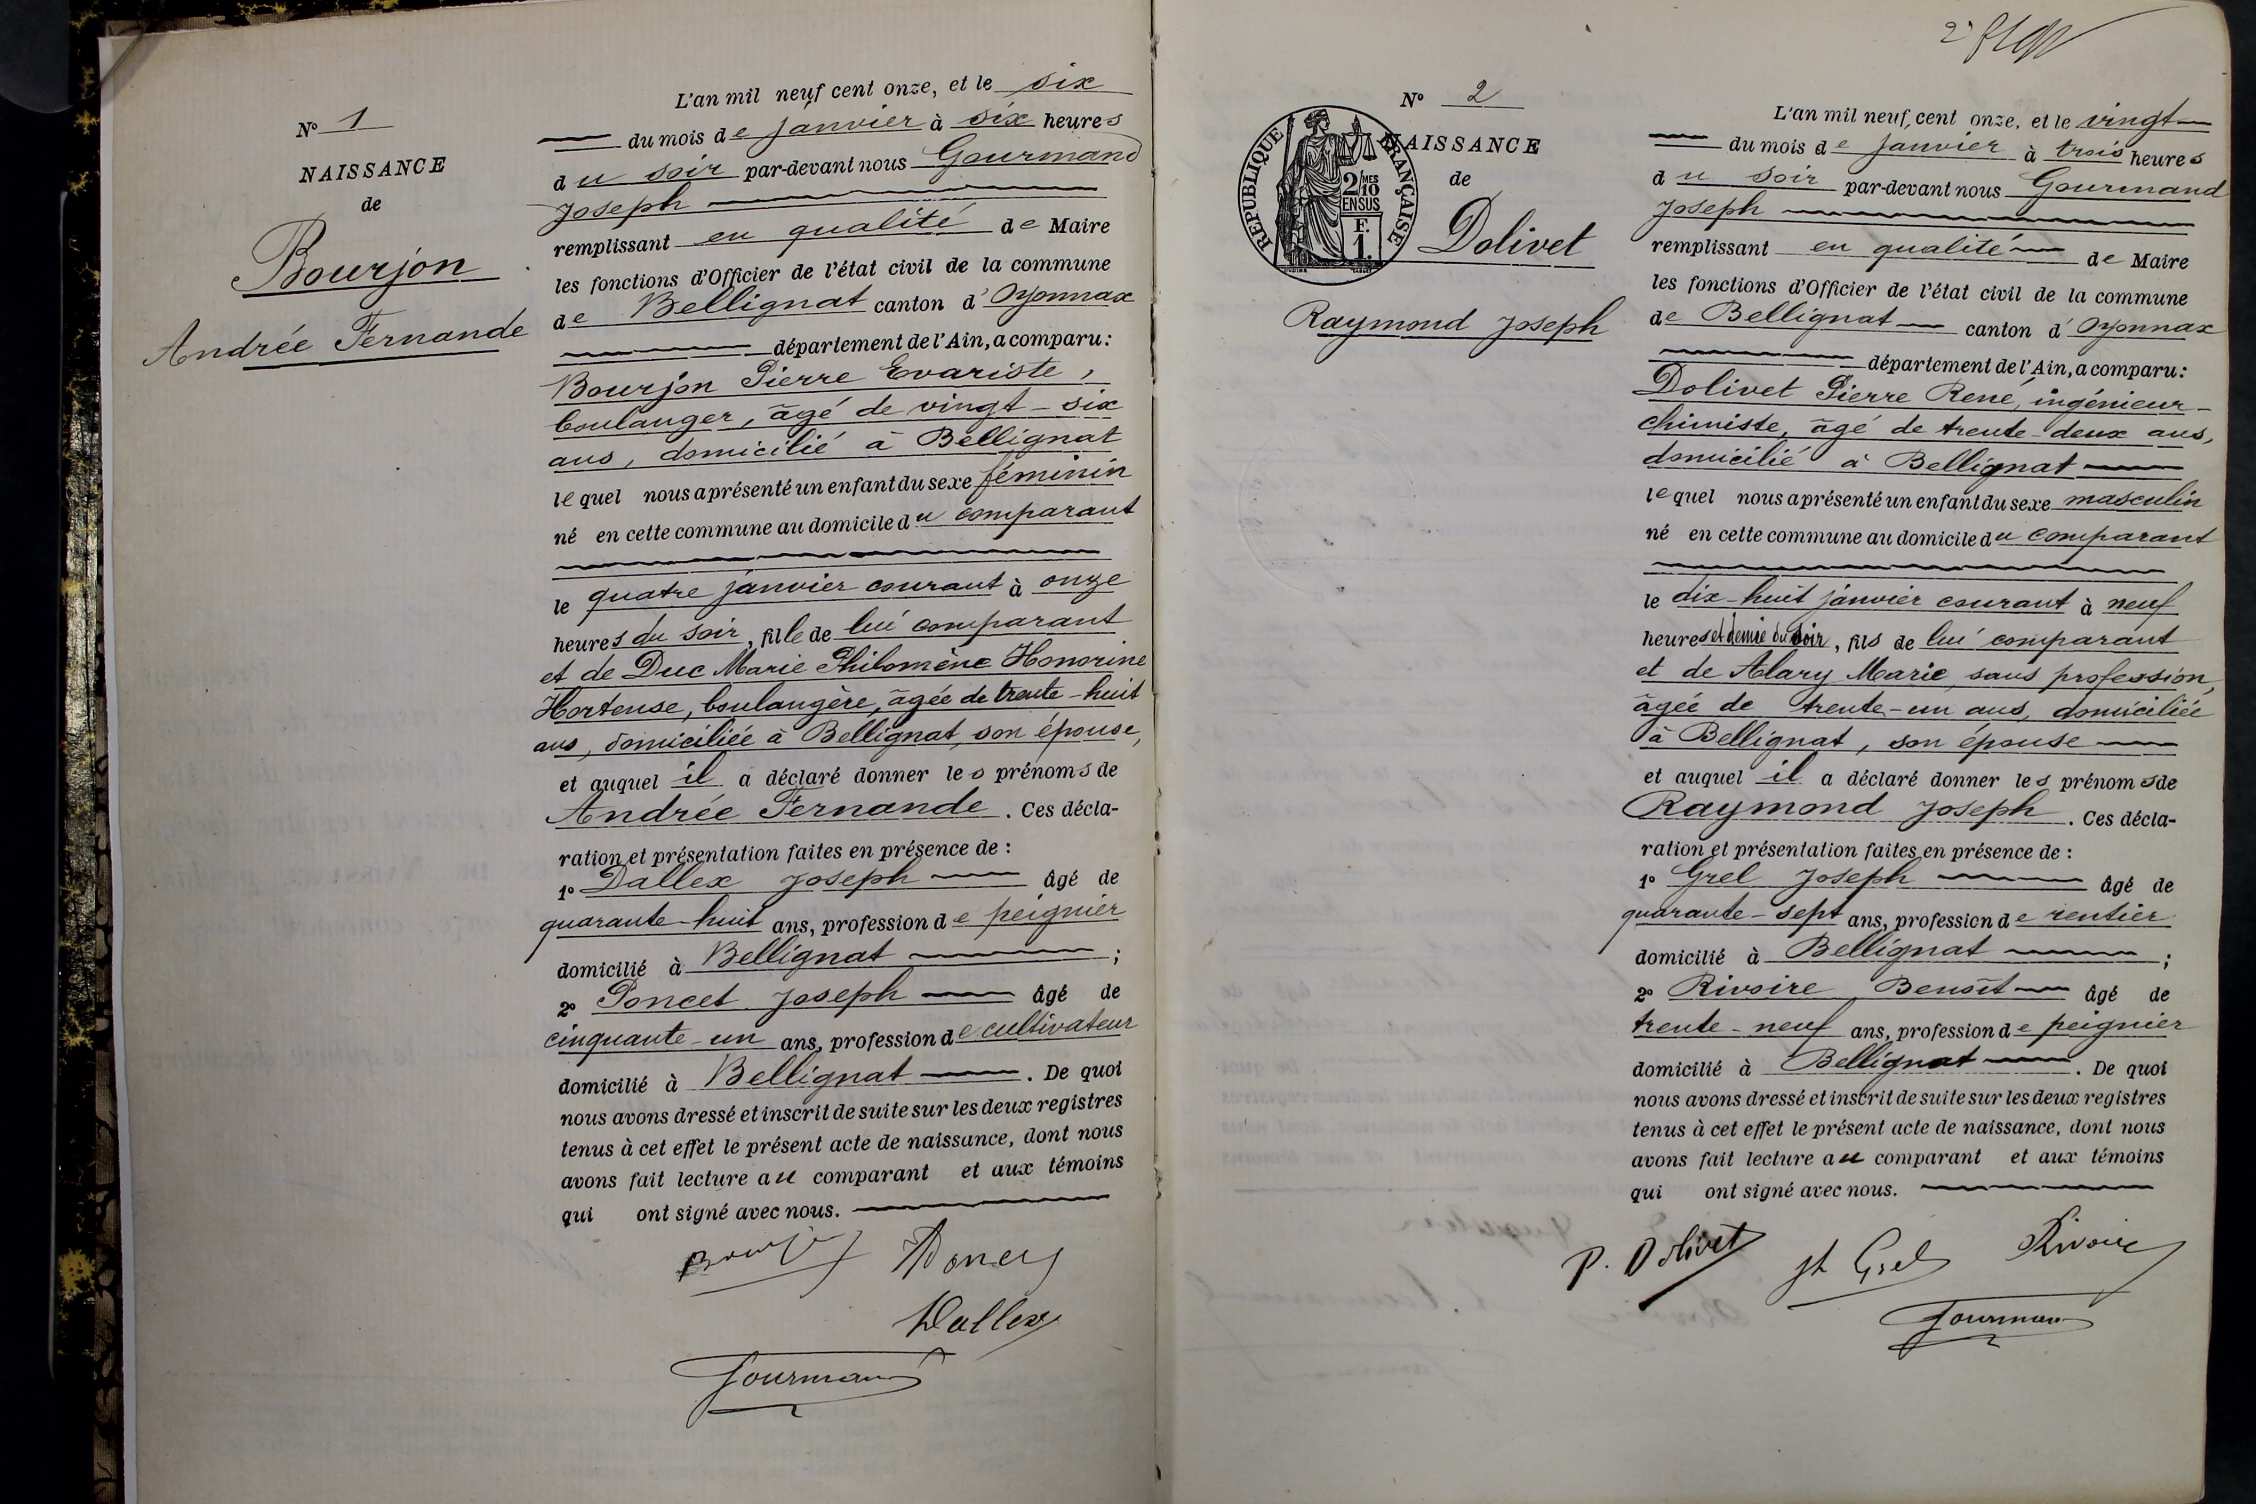 N° 1
NAISSANCE
de
Bourjon
Andrée Fernande
L'an mil neuf cent onze, et le six
du mois de janvier à six heures
du soir par-devant nous Gourmand
Joseph
remplissant en qualité de Maire
les fonctions d'Officier de l'état civil de la commune
de Bellignat canton d'Oyonnax
département de l'Ain, a comparu :
Bourjon Pierre Evariste,
boulanger, âgé de vingt-six
ans, domicilié à Bellignat
lequel nous a présenté un enfant du sexe féminin
né en cette commune au domicile du comparant
le quatre janvier courant à onze
heures du soir, fille de lui comparant
et de Duc Marie Philomène Honorine
Hortense, boulangère, âgée de trente-huit
ans, domiciliée à Bellignat, son épouse,
et auquel il a déclaré donner les prénoms de
Andrée Fernande. Ces décla-
ration et présentation faites en présence de :
1° Dallex Joseph âgé de
quarante-huit ans, profession de peignier
domicilié à Bellignat ;
2° Poncet Joseph âgé de
cinquante-un ans, profession de cultivateur
domicilié à Bellignat. De quoi
nous avons dressé et inscrit de suite sur les deux registres
tenus à cet effet le présent acte de naissance, dont nous
avons fait lecture au comparant et aux témoins
qui ont signé avec nous.
Dallex
Gourmand
N° 2
RÉPUBLIQUE FRANÇAISE
2/10 MES
EN SUS
F.
1.
NAISSANCE
de
Dolivet
Raymond Joseph
L'an mil neuf cent onze, et le vingt
du mois de janvier à trois heures
du soir par-devant nous Gourmand
Joseph
remplissant en qualité de Maire
les fonctions d'Officier de l'état civil de la commune
de Bellignat canton d'Oyonnax
département de l'Ain, a comparu :
Dolivet Pierre René, ingénieur-
chimiste, âgé de trente-deux ans,
domicilié à Bellignat
lequel nous a présenté un enfant du sexe masculin
né en cette commune au domicile du comparant
le dix-huit janvier courant à neuf
heures et demie du soir, fils de lui comparant
et de Alary Marie, sans profession,
âgée de trente-un ans, domiciliée
à Bellignat, son épouse
et auquel il a déclaré donner les prénoms de
Raymond Joseph. Ces décla-
ration et présentation faites en présence de :
1° Grel Joseph âgé de
quarante-sept ans, profession de rentier
domicilié à Bellignat ;
2° Rivoire Benoît âgé de
trente-neuf ans, profession de peignier
domicilié à Bellignat. De quoi
nous avons dressé et inscrit de suite sur les deux registres
tenus à cet effet le présent acte de naissance, dont nous
avons fait lecture au comparant et aux témoins
qui ont signé avec nous.
P. Dolivet Jh Grel Rivoire
Gourmand